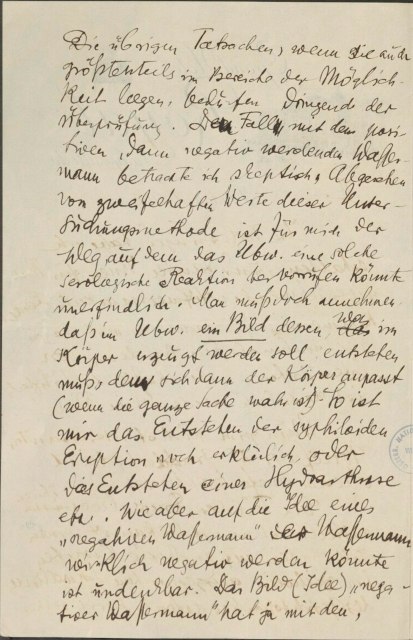 Die übrigen Tatsachen, wenn sie auch
größtenteils im Bereiche der Möglich-
keit liegen, bedürfen dringend der
Überprüfung. Den Fall, mit dem posi-
tiven, dann negativ werdenden Wasser-
mann betrachte ich skeptisch. Abgesehen
vom zweifelhaften Werte dieser Unter-
suchungsmethode ist für mich der
Weg auf dem das Ubw. eine solche
serologische Reaktion hervorrufen könnte
unerfindlich. Man muß doch annehmen
daß im Ubw. ein Bild dessen, was im
Körper erzeugt werden soll, entstehen
muß, dem sich dann der Körper anpasst
(wenn die ganze Sache wahr ist). So ist
mir das Entstehen der syphiloiden
Eruption noch erklärlich, oder
das Entstehen eines Hydrarthrose
etc.. Wie aber auf die Idee eines
„negativen Wassermann" der Wassermann
wirklich negativ werden könnte
ist undenkbar. Das Bild (Idee) „nega-
tiver Wassermann" hat ja mit den,